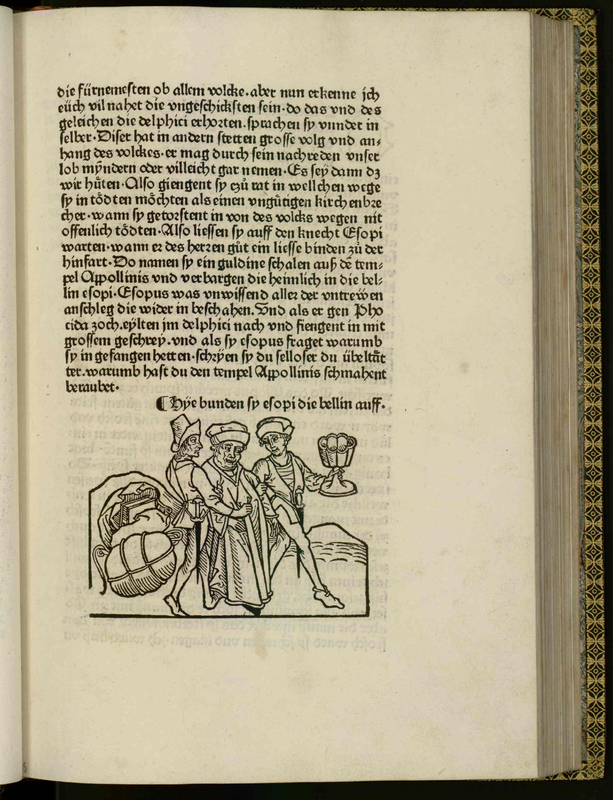 die fürnemesten ob allem volcke. aber nun erkenne ich
eüch vil nahet die vngeschicksten sein. do das vnd des
geleichen die delphici erhorten. sprachen sy vnnder in
selber. Diser hat in andern stetten grosse volg vnd an-
hang des volckes. er mag durch sein nachreden vnser
lob myndern oder villeicht gar nemen. Es sey dann dz
wir hüten. Also giengent sy czů rat in wellchen wege
sy in tödten möchten als einen vngütigen kirchenbre
cher. wann sy getorstent in von des volcks wegen nit
offenlich tödten. Also liessen sy auff den knecht Esopi
warten. wann er des herzen gůt ein liesse binden zů der
hinfart. Do namen sy ein guldine schalen auß dē tem-
pel Appollinis vnd verbargen die heimlich in die bel-
lin esopi. Esopus was vnwissend aller der vntrewen
anschleg die wider in beschahen. Vnd als er gen Pho
cida zoch. eylten jm delphici nach vnd fiengent in mit
grossem geschrey. vnd als sy esopus fraget warumb
sy in gefangen hetten. schryen sy du selloser du übeltät
ter. warumb hast du den tempel Appollinis schmahent
beraubet.
¶ Hye bunden sy esopi die bellin auff.